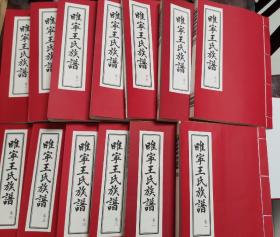 睢宁王氏族谱
睢宁王氏族谱
睢宁王氏族谱
睢宁王氏族谱
睢宁王氏族谱
睢宁王氏族谱
睢宁王氏族谱
睢宁王氏族谱
睢宁王氏族谱
睢宁王氏族谱
睢宁王氏族谱
睢宁王氏族谱
睢宁王氏族谱